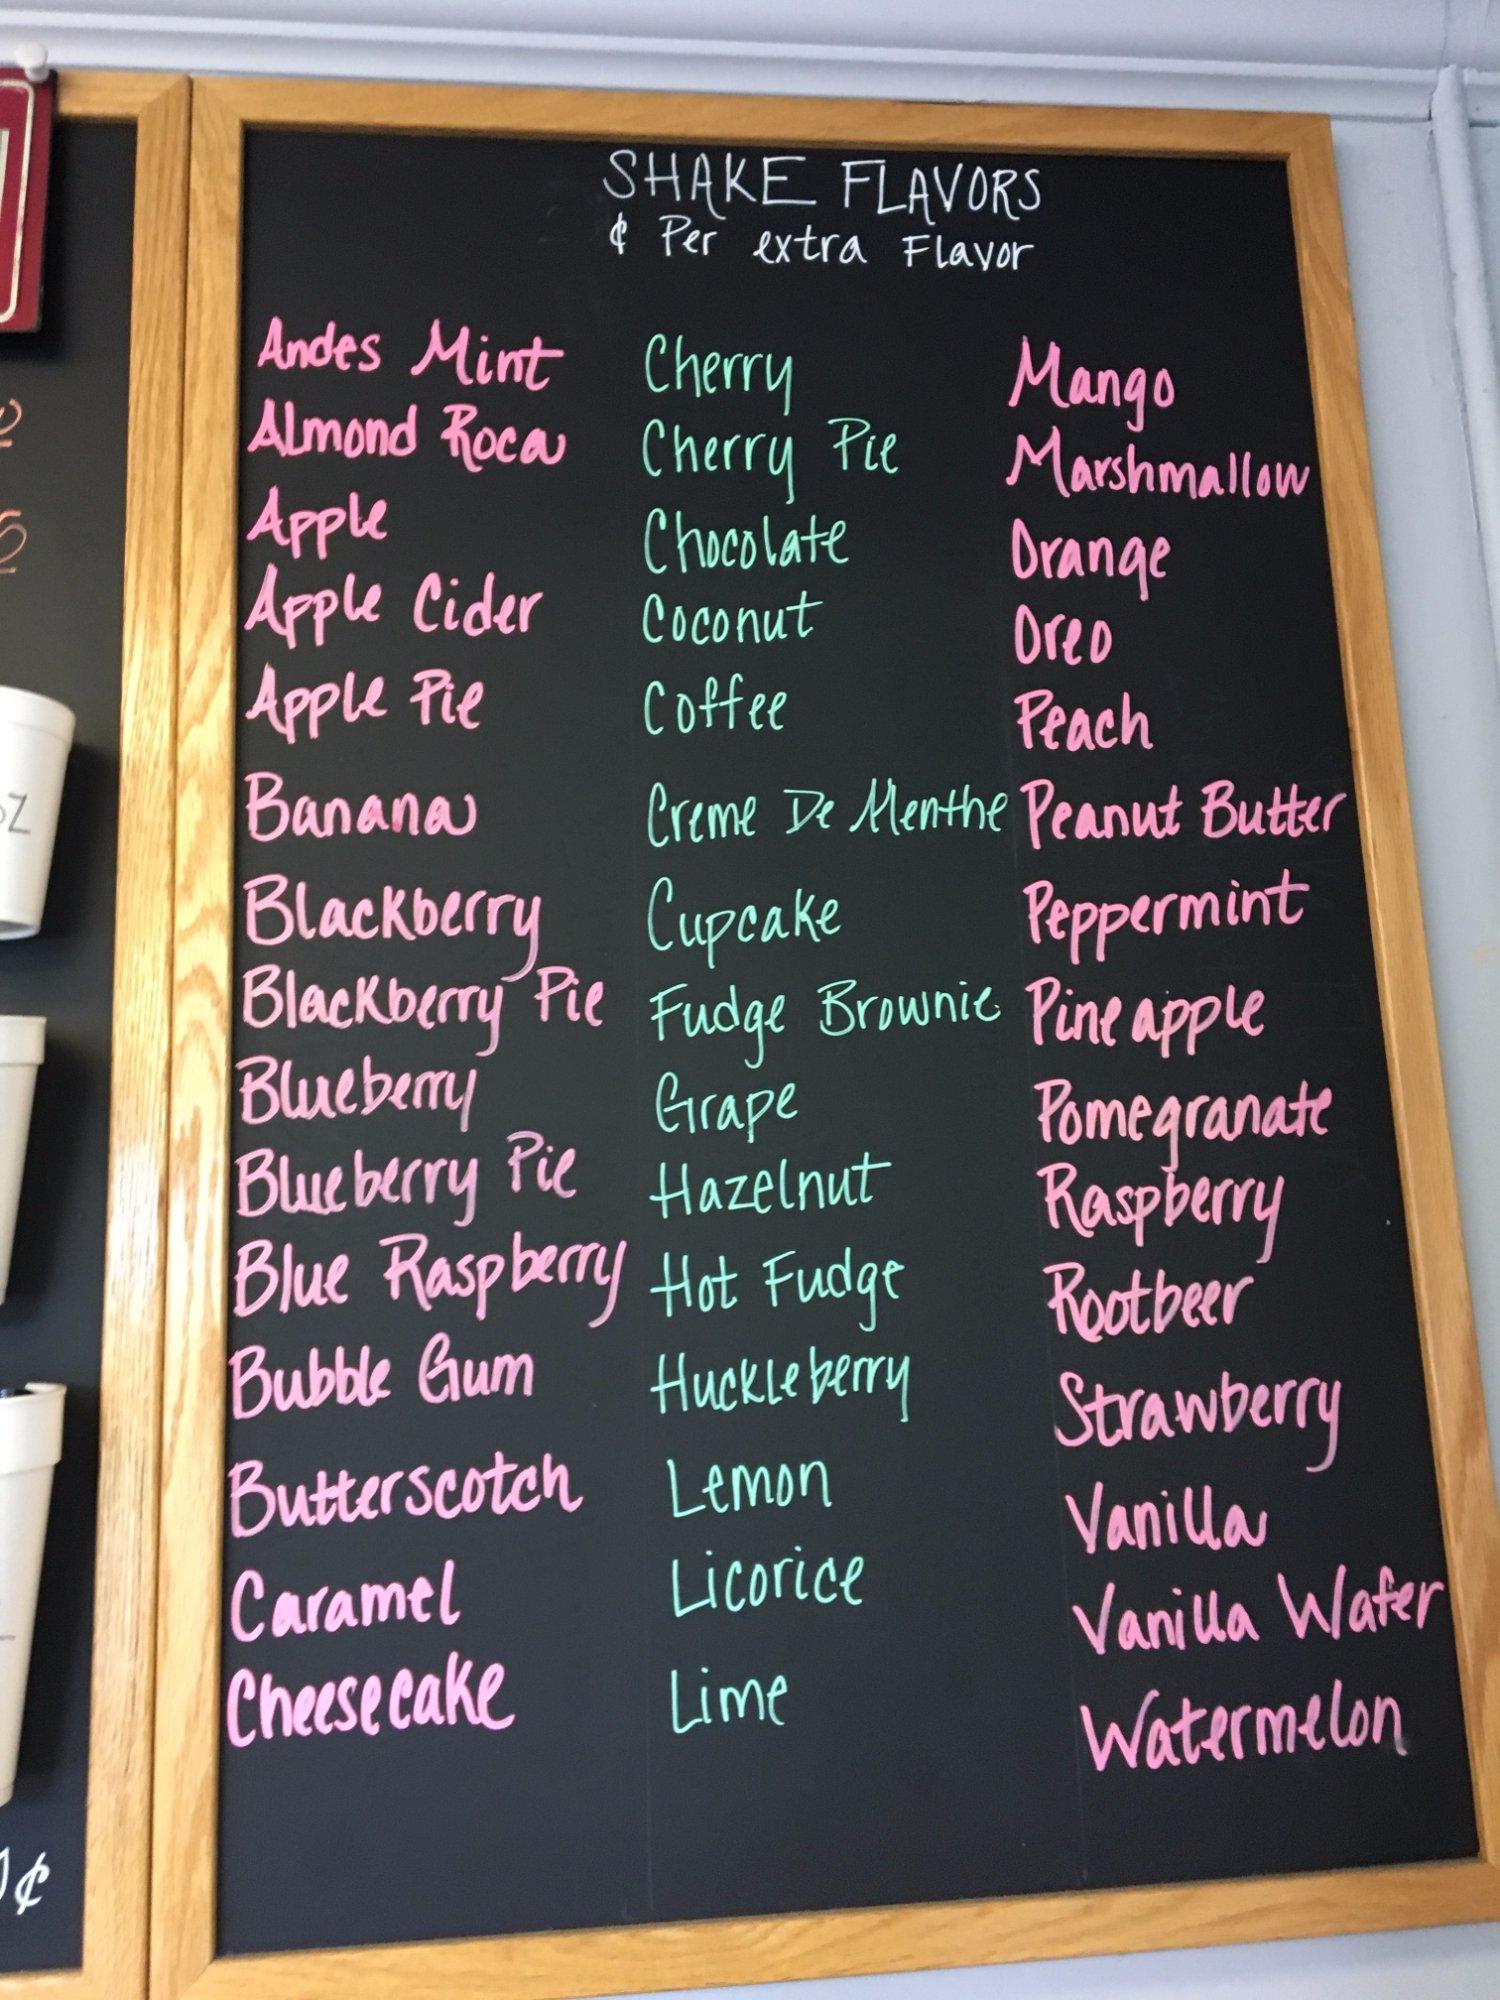 SHAKE FLAVORS
¢ Per extra Flavor
Andes Mint
Almond Roca
Apple
Apple Cider
Apple Pie
Banana
Blackberry
Blackberry Pie
Blueberry
Blueberry Pie
Blue Raspberry
Bubble Gum
Butterscotch
Caramel
Cheesecake
Cherry
Cherry Pie
Chocolate
Coconut
Coffee
Creme De Menthe
Cupcake
Fudge Brownie
Grape
Hazelnut
Hot Fudge
Huckleberry
Lemon
Licorice
Lime
Mango
Marshmallow
Orange
Oreo
Peach
Peanut Butter
Peppermint
Pineapple
Pomegranate
Raspberry
Rootbeer
Strawberry
Vanilla
Vanilla Wafer
Watermelon